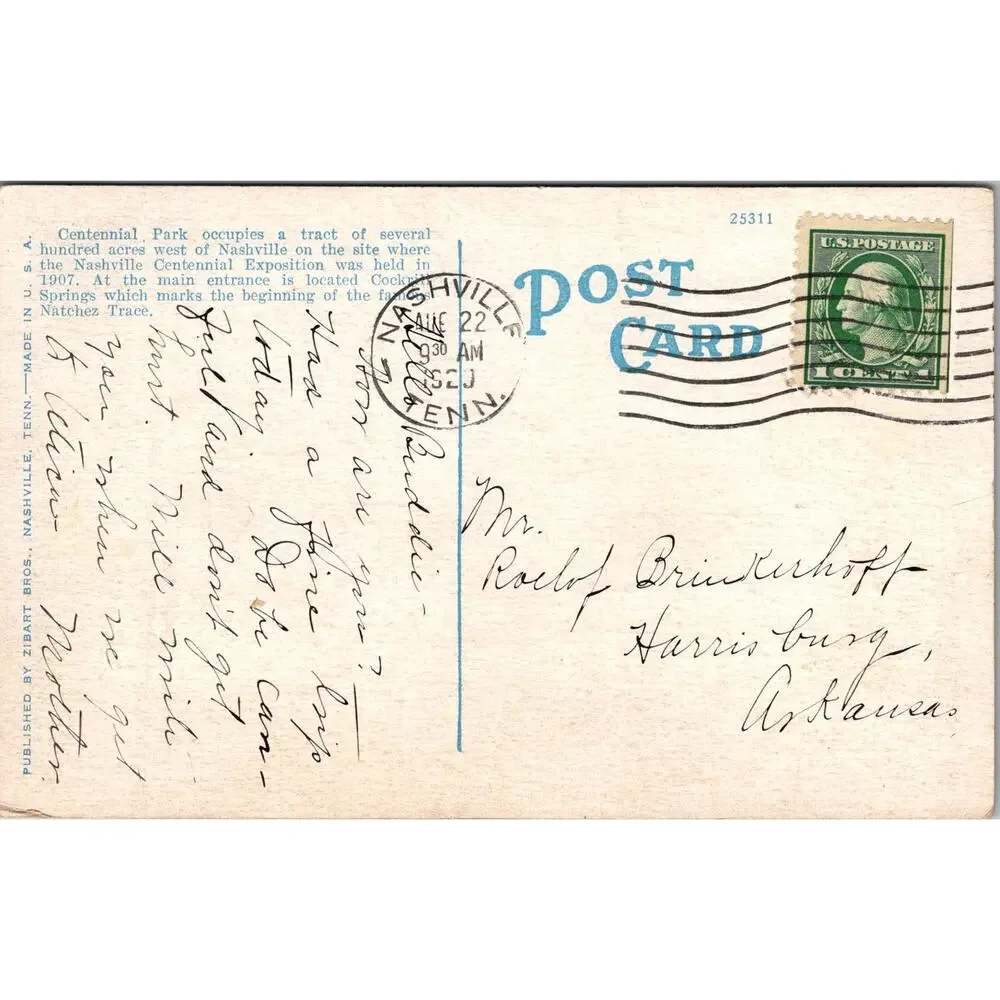 Centennial Park occupies a tract of several
hundred acres west of Nashville on the site where
the Nashville Centennial Exposition was held in
1907. At the main entrance is located Cockrill
Springs which marks the beginning of the famous
Natchez Trace.
PUBLISHED BY ZIBART BROS., NASHVILLE, TENN.—MADE IN U. S. A.
25311
POST
CARD
U.S. POSTAGE
1 CENT 1
NASHVILLE
TENN.
AUG 22
9 30 AM
1920
Hello Buddie-
How are you?
Had a fine trip
today. Do be care-
ful and don't get
hurt. Will write
you when we get
to Utica-
Mother.
Mr.
Roelof Brinkerhoff
Harrisburg,
Arkansas